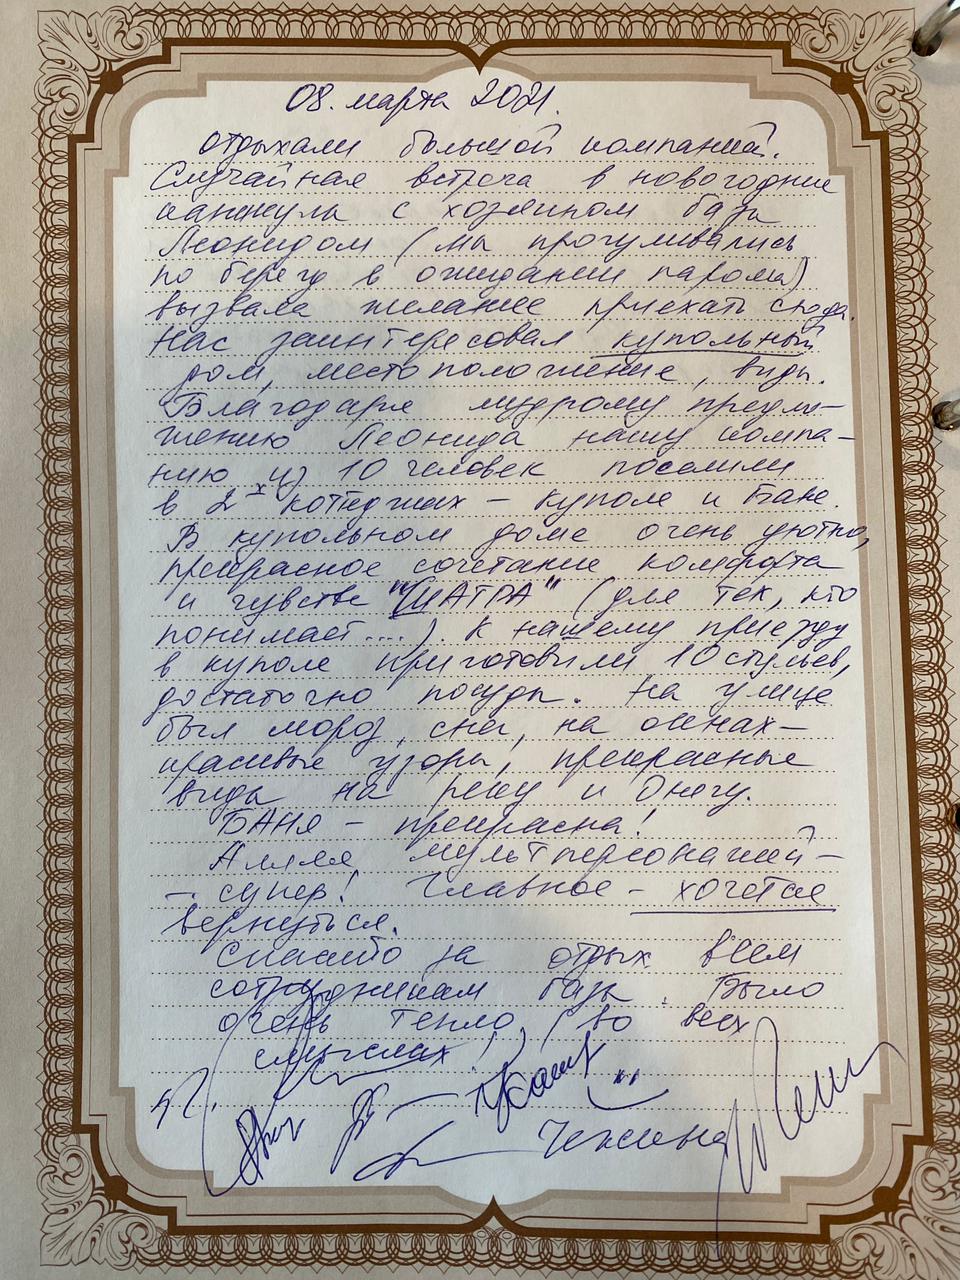 08. марта 2021.
отдыхали большой компанией.
Случайная встреча в новогодние
каникулы с хозяином базы
Леонидом (мы прогуливались
по берегу в ожидании парома)
вызвала желание приехать сюда.
Нас заинтересовал купольный
дом, местоположение, виды.
Благодаря мудрому предло-
жению Леонида нашу компа-
нию из 10 человек поселили
в 2х котеджах - куполе и Бане.
В купольном доме очень уютно,
прекрасное сочетание комфорта
и чувства "ШАТРА" (для тех, кто
понимает....). К нашему приезду
в куполе приготовили 10 стульев,
достаточно посуды. На улице
был мороз, снег, на окнах -
красивые узоры, прекрасные
виды на реку и Онегу.
БАНЯ - прекрасна!
Аллея мультперсонажей -
- супер! Главное - хочется
вернуться.
Спасибо за отдых всем
сотрудникам базы. Было
очень тепло, (во всех
смыслах!)